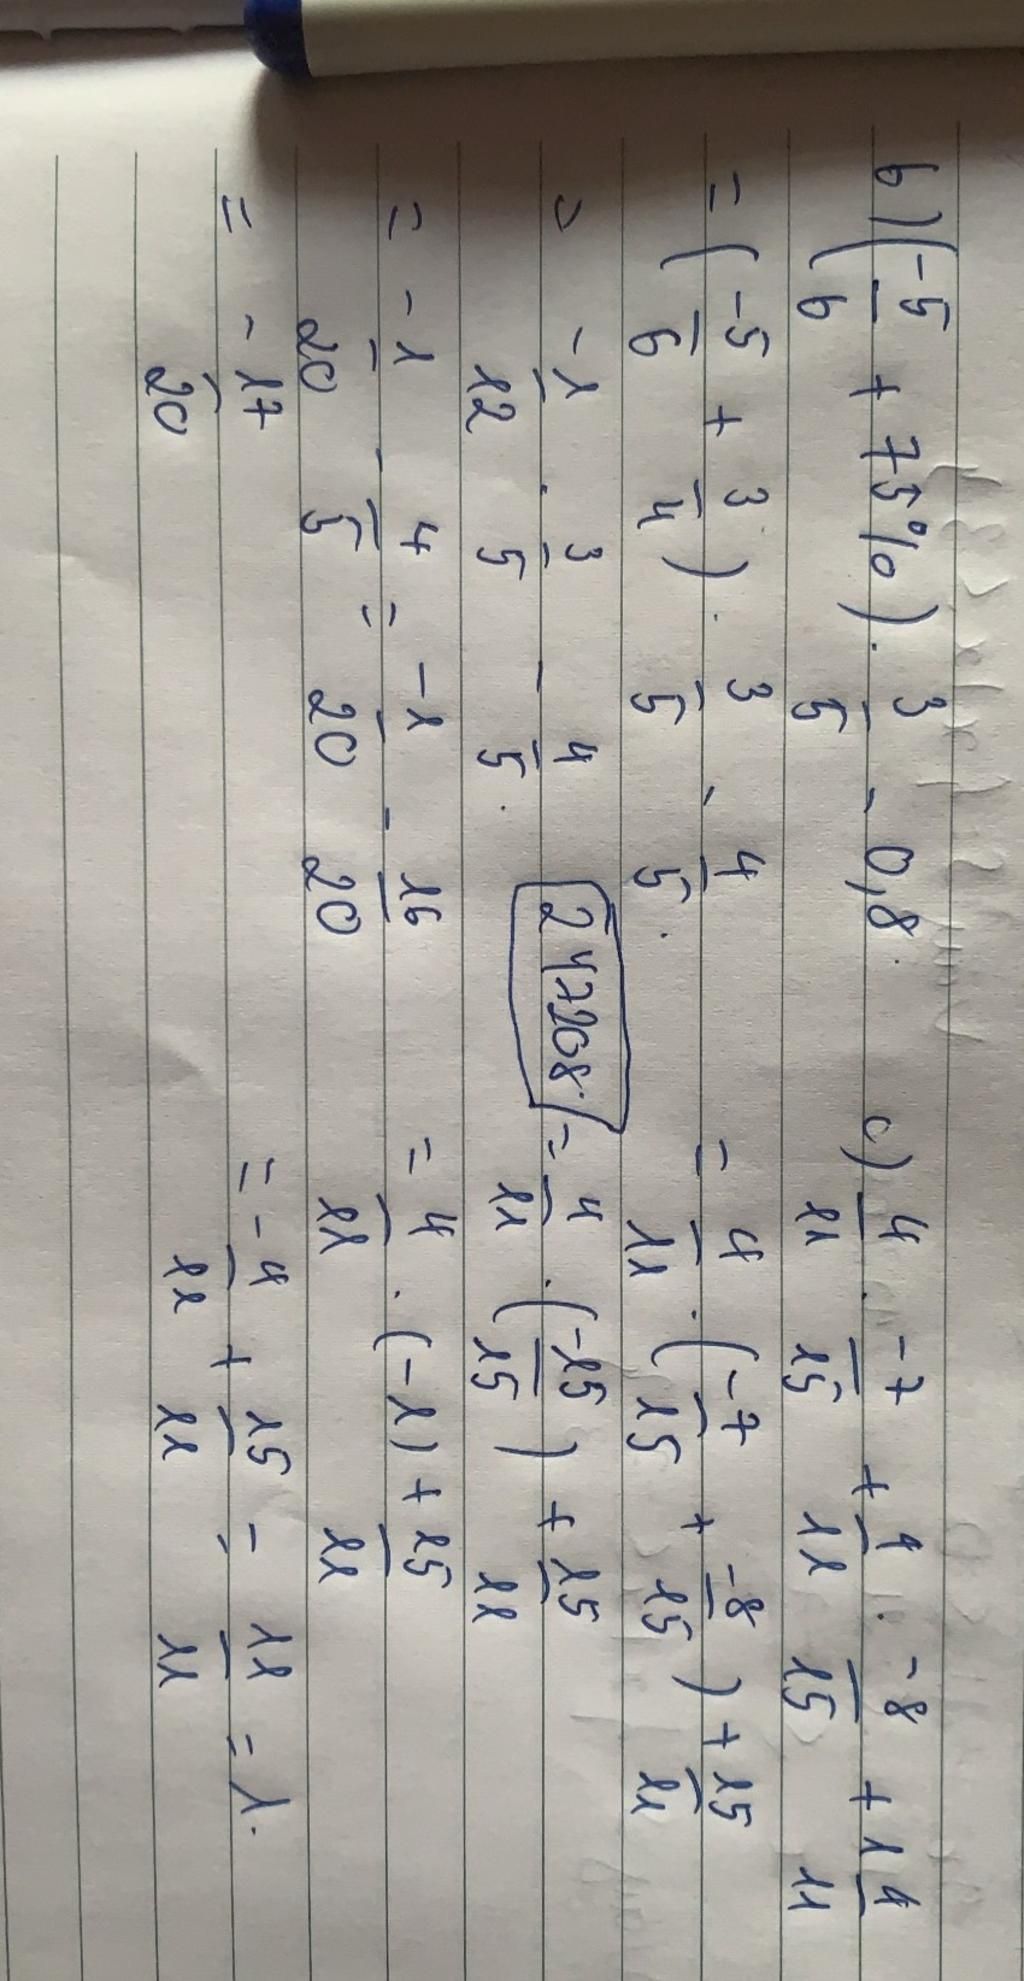 b) (-5/6 + 75%) . 3/5 - 0,8.
= (-5/6 + 3/4) . 3/5 - 4/5.
= -1/12 . 3/5 - 4/5.
= -1/20 - 4/5 = -1/20 - 16/20
= -17/20
247208
c) 4/11 . -7/15 + 4/11 . -8/15 + 1 4/11
= 4/11 . (-7/15 + -8/15) + 15/11
= 4/11 . (-15/15) + 15/11
= 4/11 . (-1) + 15/11
= -4/11 + 15/11 = 11/11 = 1.